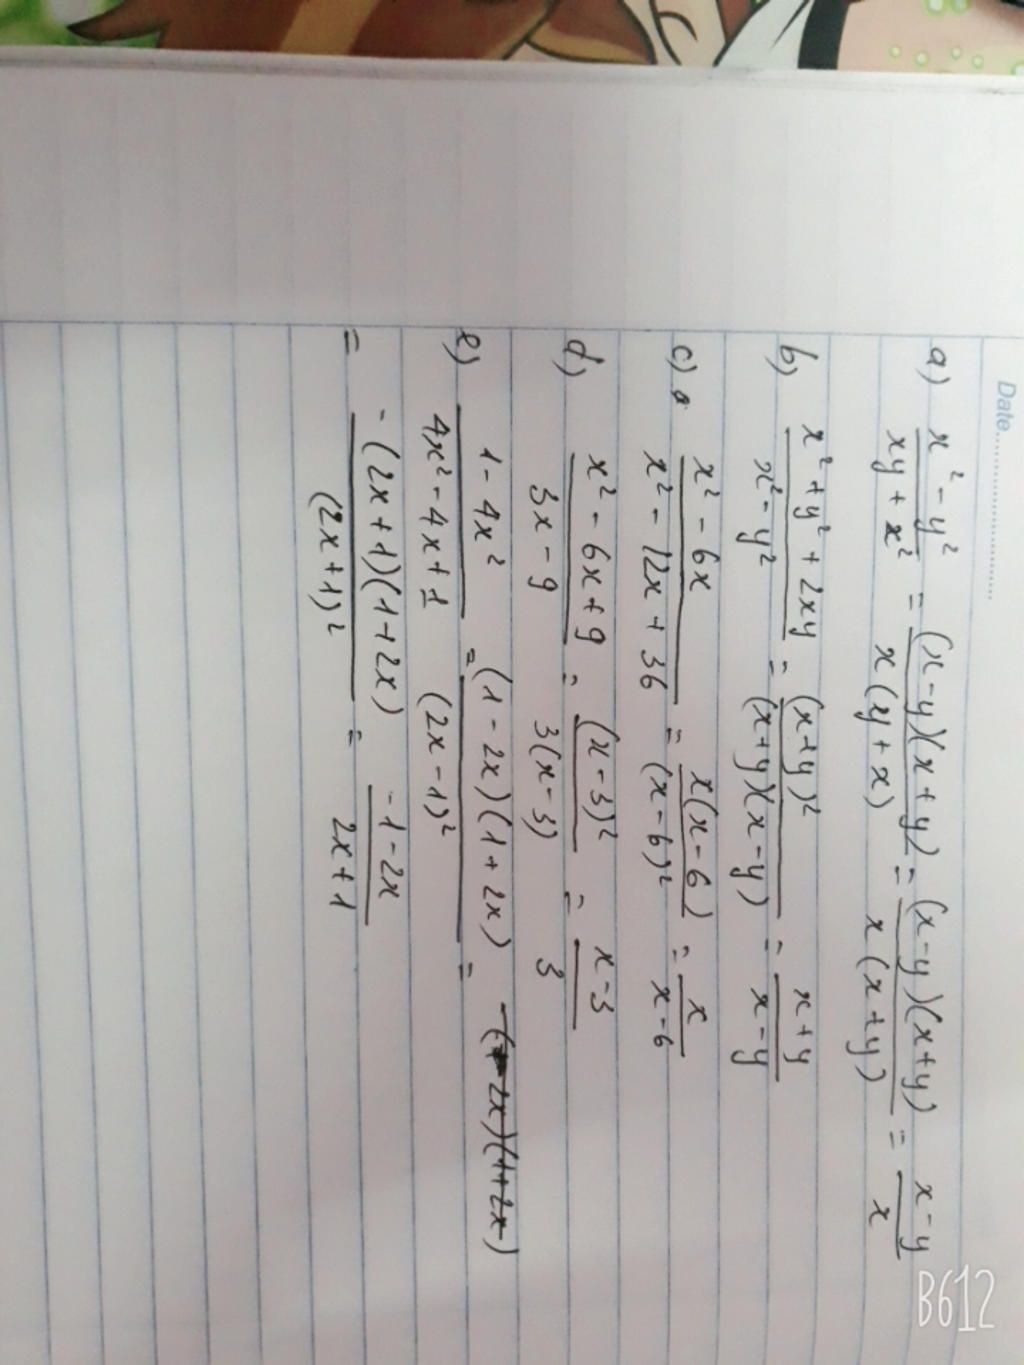 Date
a) x² - y² / xy + x² = (x-y)(x+y) / x(y+x) = (x-y)(x+y) / x(x+y) = x-y / x
b) x² + y² + 2xy / x² - y² = (x+y)² / (x+y)(x-y) = x+y / x-y
c) x² - 6x / x² - 12x + 36 = x(x-6) / (x-6)² = x / x-6
d) x² - 6x + 9 / 3x - 9 = (x-3)² / 3(x-3) = x-3 / 3
e) 1 - 4x² / 4x² - 4x + 1 = (1-2x)(1+2x) / (2x-1)² =
= -(2x+1)(1+2x) / (2x+1)² = -1-2x / 2x+1
B612